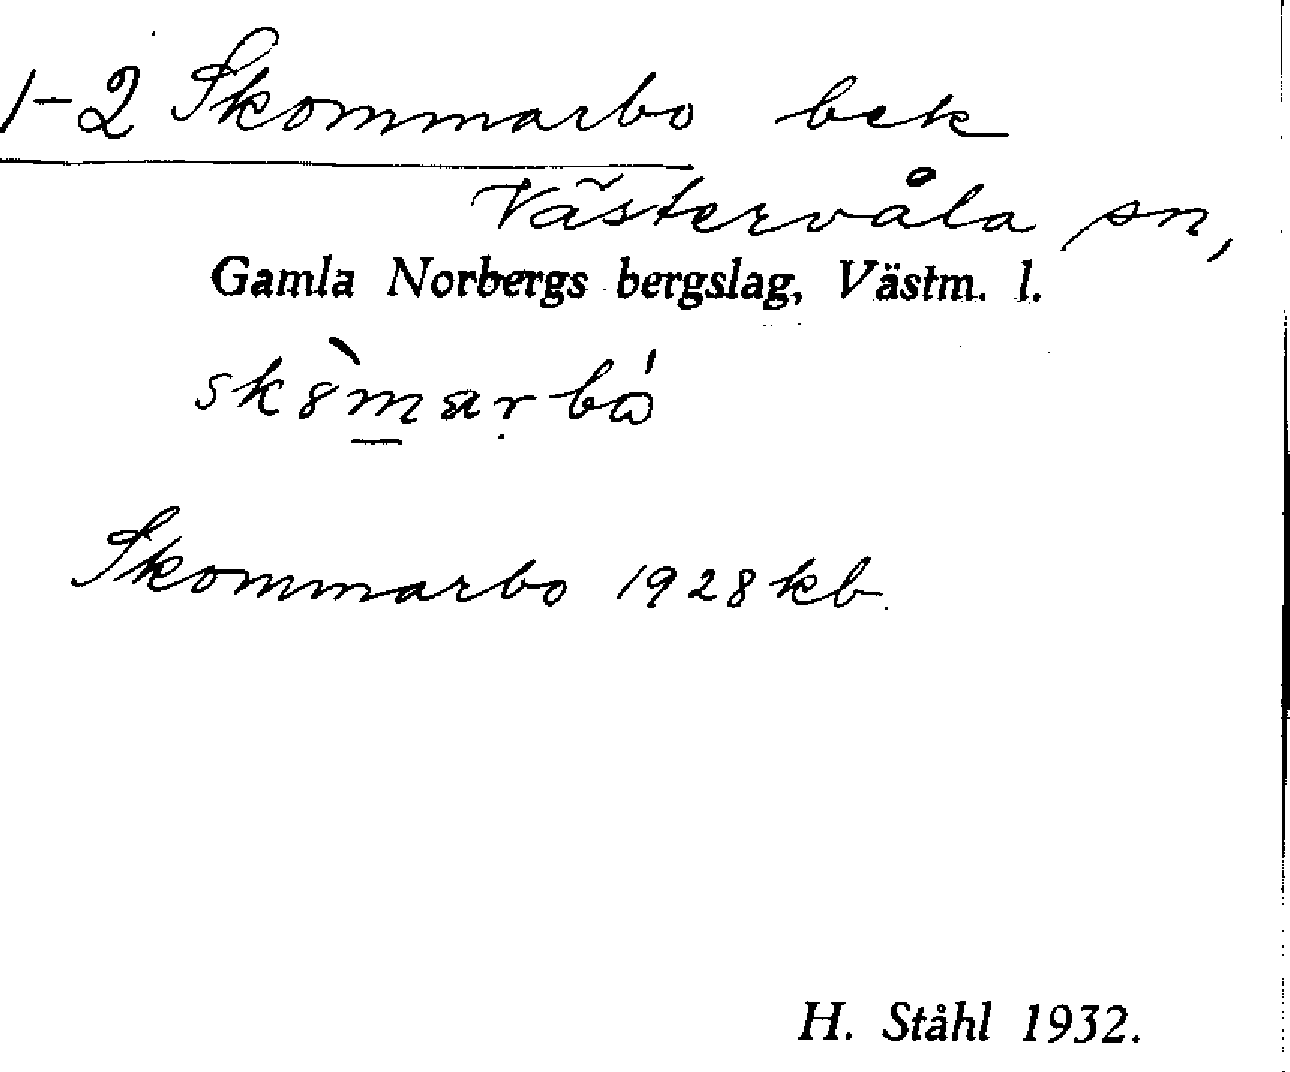 1-2 Skommarbo bek
Västervåla sn,
Gamla Norbergs bergslag, Västm. l.
Skommarbo 1928 kb.
H. Ståhl 1932.